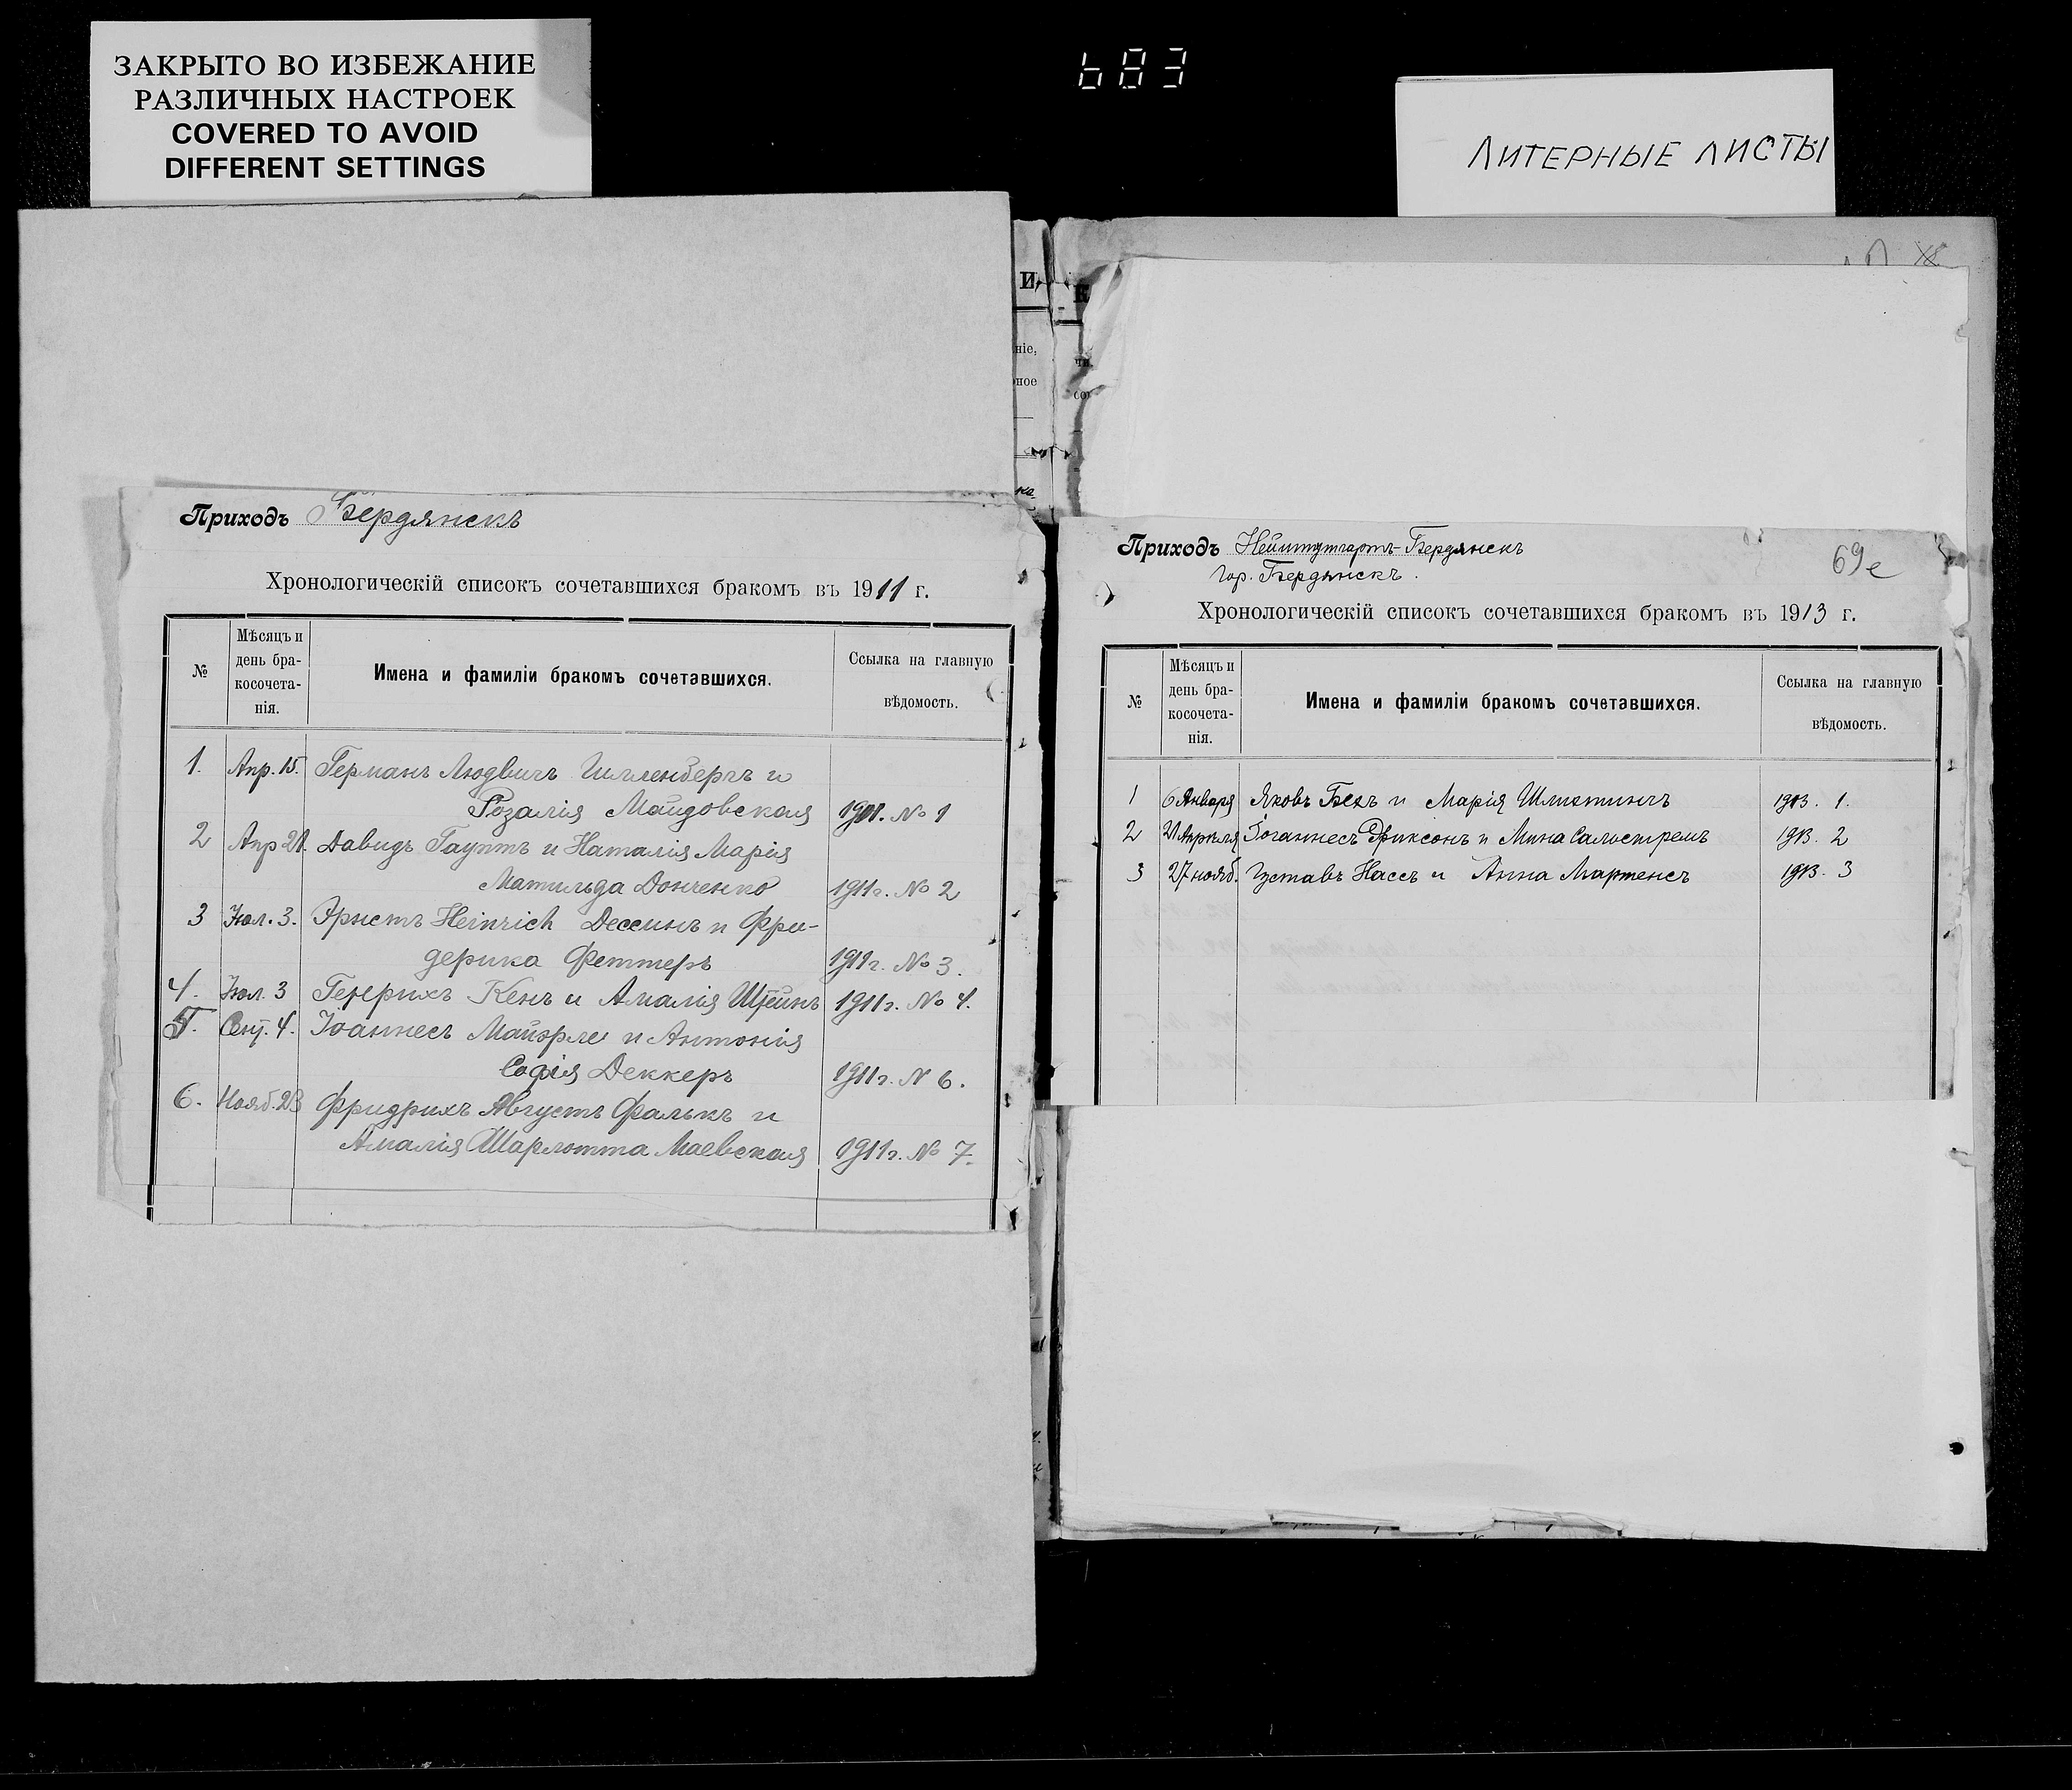 ЗАКРЫТО ВО ИЗБЕЖАНИЕ
РАЗЛИЧНЫХ НАСТРОЕК
COVERED TO AVOID
DIFFERENT SETTINGS
683
ЛИТЕРНЫЕ ЛИСТЫ
Приходъ Бердянскъ
Хронологическій списокъ сочетавшихся бракомъ въ 1911 г.
№
Мѣсяцъ и
день бра-
косочета-
нія.
Имена и фамиліи бракомъ сочетавшихся.
Ссылка на главную
вѣдомость.
1. Апр. 15. Германъ Людвигъ и
Розалія Майдовская 1911. № 1
2 Апр 21. Давидъ Гауптъ и Наталія Марія
Матильда Донченко 1911г. № 2
3 Іюл. 3. Эрнстъ Heinrich Дессинъ и Фри-
дерика Феттеръ 1911г. № 3.
4. Іюл. 3 Генрихъ Кенъ и Амалія Штейнъ 1911г. № 4.
5. Сент. 4. Іоаннесъ Майэрле и Антонія
Софія Деккеръ 1911г. № 6.
6. Нояб. 23 Фридрихъ Августъ Фалькъ и
Амалія Шарлотта Маевская 1911г. № 7.
Приходъ Нейштутгартъ-Бердянскъ
гор. Бердянскъ.
69е
Хронологическій списокъ сочетавшихся бракомъ въ 1913 г.
№
Мѣсяцъ и
день бра-
косочета-
нія.
Имена и фамиліи бракомъ сочетавшихся.
Ссылка на главную
вѣдомость.
1 6 Января Яковъ Бекъ и Марія 1913. 1.
2 21 Апрѣля Іоганнесъ Эриксонъ и Мина Сальстремъ 1913. 2
3 27 нояб. Густавъ Нассъ и Анна Мартенсъ 1913. 3